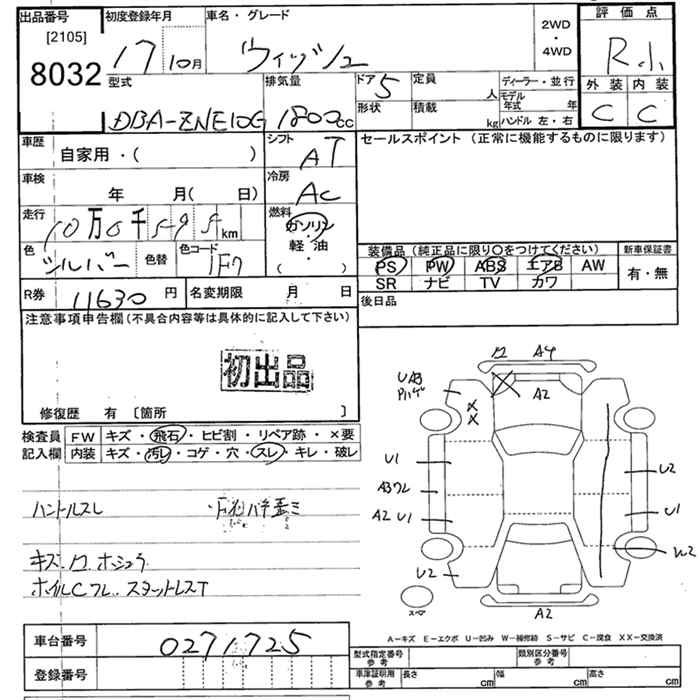 出品番号 初度登録年月 車名・グレード 2WD・4WD 評価点
[2105]
8032 17 10月 ウィッシュ R小
型式 排気量 ドア 5 定員 人 ディーラー・並行 外装 内装
DBA-ZNE10G 1800cc 形状 積載 kg モデル年式 年 C C
ハンドル 左・右
車歴 自家用・( ) シフト AT セールスポイント (正常に機能するものに限ります)
車検 年 月( 日) 冷房 AC
走行 10万0千595km 燃料 ガソリン・軽油 ( )
色 シルバー 色替 色コード 1F7
装備品 (純正品に限り○をつけてください) 新車保証書
PS PW ABS エアB AW 有・無
SR ナビ TV カワ
R券 11630円 名変期限 月 日 後日品
注意事項申告欄 (不具合内容等は具体的に記入して下さい)
初出品
修復歴 有 [箇所 ]
検査員 FW キズ・飛石・ヒビ割・リペア跡・×要
記入欄 内装 キズ・汚れ・コゲ・穴・スレ・キレ・破レ
ハンドルスレ
A4
UAB
A2
U1
U2
A3ワレ
A2 U1
U1
W2
U2
スペア
A2
A-キズ E-エクボ U-凹み W-補修跡 S-サビ C-腐食 XX-交換済
車台番号 0271725
登録番号
型式指定番号 参考 類別区分番号 参考
車庫証明用 参考 長さ cm 幅 cm 高さ cm